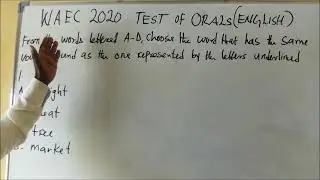 WAEC 2020 TEST OF ORALS (ENGLISH)
From words lettered A-D, choose the word that has the same
sound as the one represented by the letters underlined
1.
tree
market